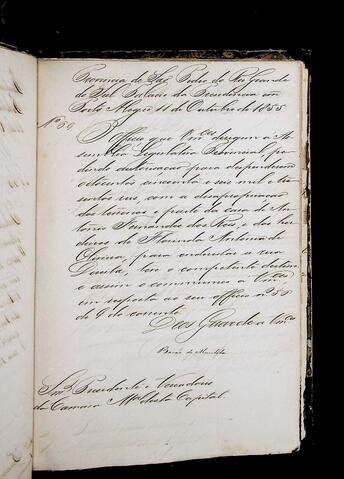 Provincia de São Pedro do Rio Grande
do Sul Palacio da Presidencia em
Porto Alegre 11 de Outubro de 1855
O officio que Vmces dirigirão a As
sembléa Legislativa Provincial, pe
dindo autorisação para despenderem
oitocentos e seis mil e tre
sentos reis, com a desapropriação
dos terrenos e parte da casa de An
tonio Fernandes dos Reis, e dos her
deiros de Florinda Antonia de
Oliveira, para endireitar a rua
Direita, teve o competente destino
e assim o communico a Vmces
em resposta ao seu officio nº 58
de 9 do corrente.
Deos Guarde a Vmces
Barão de Muritiba
Snres Presidente e Vereadores
da Camara Mal desta Capital.